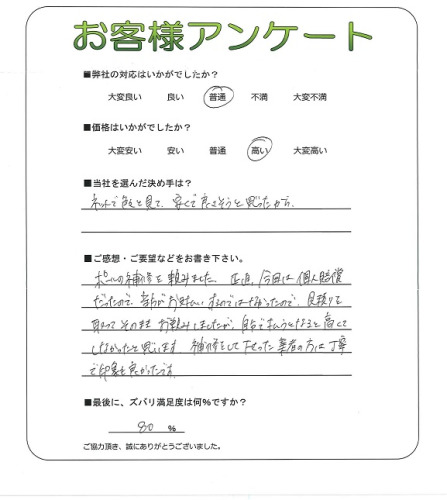 お客様アンケート
■弊社の対応はいかがでしたか？
大変良い 良い 普通 不満 大変不満
■価格はいかがでしたか？
大変安い 安い 普通 高い 大変高い
■当社を選んだ決め手は？
ネットで を見て、安くて良さそうと思ったから。
■ご感想・ご要望などをお書き下さい。
ポールの補修を頼みました。正直、今回は個人賠償
だったので、 お支払いするのではなかったので、見積りを
取って そのまま お頼みしましたが、自分で払うとなると高くて
しなかったと思います 補修をして下さった業者の方は丁寧
で印象も良かったです。
■最後に、ズバリ満足度は何%ですか？
80 %
ご協力頂き、誠にありがとうございました。